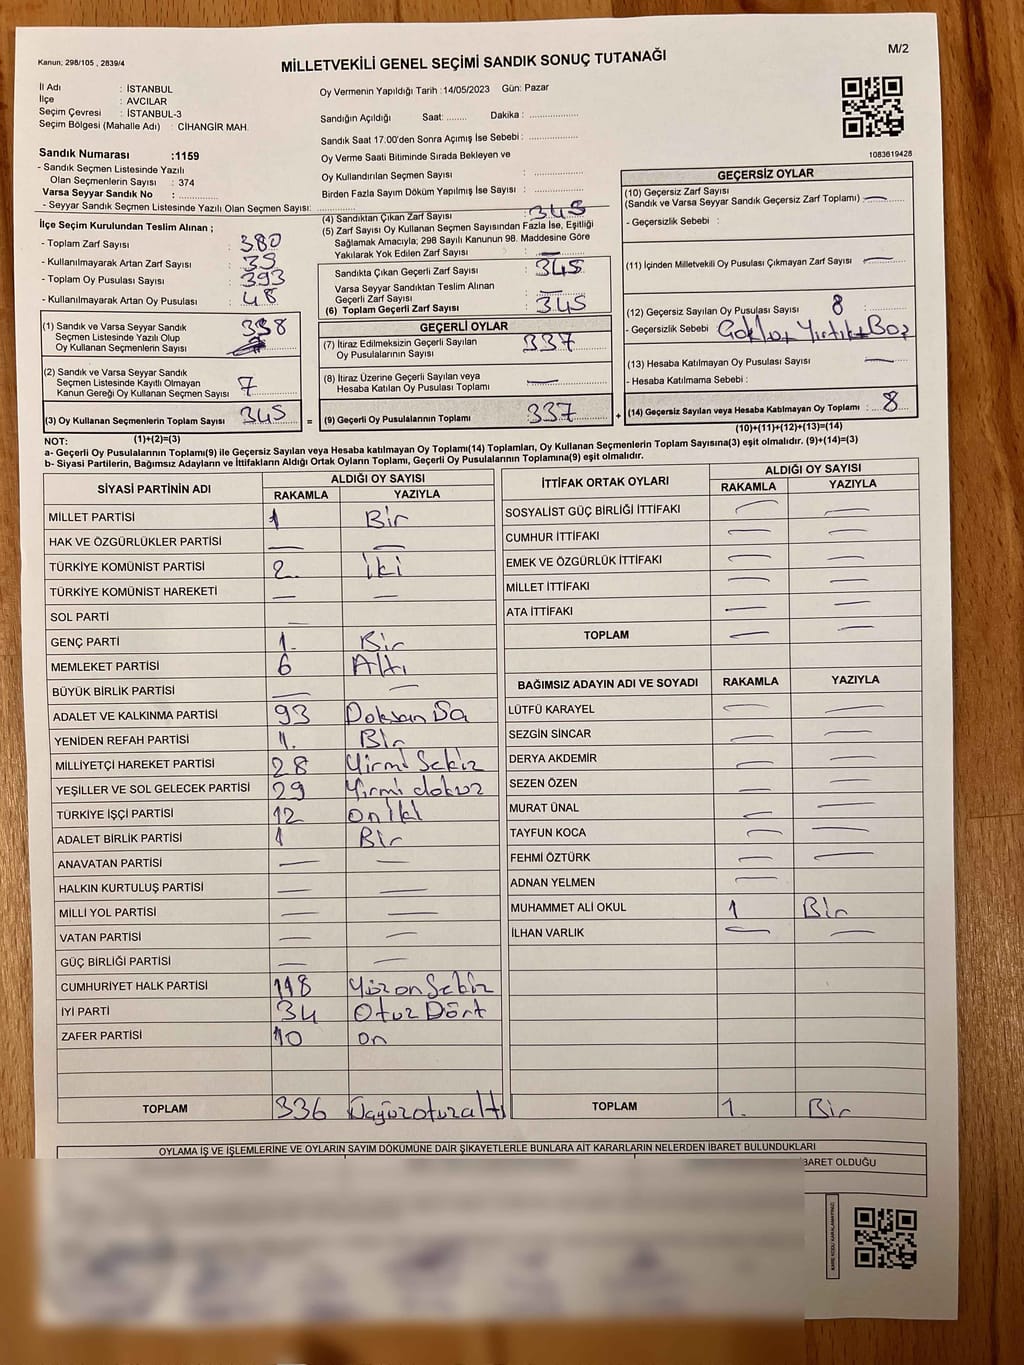 Kanun; 298/105 , 2839/4
MİLLETVEKİLİ GENEL SEÇİMİ SANDIK SONUÇ TUTANAĞI
M/2
İl Adı : İSTANBUL
İlçe : AVCILAR
Seçim Çevresi : İSTANBUL-3
Seçim Bölgesi (Mahalle Adı) : CİHANGİR MAH.
Sandık Numarası :1159
- Sandık Seçmen Listesinde Yazılı
Olan Seçmenlerin Sayısı : 374
Varsa Seyyar Sandık No : ............
- Seyyar Sandık Seçmen Listesinde Yazılı Olan Seçmen Sayısı: ............
Oy Vermenin Yapıldığı Tarih :14/05/2023 Gün: Pazar
Sandığın Açıldığı Saat: ....... Dakika : ...............
Sandık Saat 17.00'den Sonra Açımış İse Sebebi : ...............
Oy Verme Saati Bitiminde Sırada Bekleyen ve
Oy Kullandırılan Seçmen Sayısı : ...............
Birden Fazla Sayım Döküm Yapılmış İse Sayısı : ...............
1083619428
İlçe Seçim Kurulundan Teslim Alınan ;
- Toplam Zarf Sayısı : 380
- Kullanılmayarak Artan Zarf Sayısı : 35
- Toplam Oy Pusulası Sayısı : 393
- Kullanılmayarak Artan Oy Pusulası : 48
(1) Sandık ve Varsa Seyyar Sandık
Seçmen Listesinde Yazılı Olup
Oy Kullanan Seçmenlerin Sayısı 338
(2) Sandık ve Varsa Seyyar Sandık
Seçmen Listesinde Kayıtlı Olmayan
Kanun Gereği Oy Kullanan Seçmen Sayısı 7
(3) Oy Kullanan Seçmenlerin Toplam Sayısı 345 =
(1)+(2)=(3)
(4) Sandıktan Çıkan Zarf Sayısı 345
(5) Zarf Sayısı Oy Kullanan Seçmen Sayısından Fazla İse, Eşitliği
Sağlamak Amacıyla; 298 Sayılı Kanunun 98. Maddesine Göre
Yakılarak Yok Edilen Zarf Sayısı : —
Sandıkta Çıkan Geçerli Zarf Sayısı : 345
Varsa Seyyar Sandıktan Teslim Alınan
Geçerli Zarf Sayısı : —
(6) Toplam Geçerli Zarf Sayısı : 345
GEÇERLİ OYLAR
(7) İtiraz Edilmeksizin Geçerli Sayılan
Oy Pusulalarının Sayısı 337
(8) İtiraz Üzerine Geçerli Sayılan veya
Hesaba Katılan Oy Pusulası Toplamı —
(9) Geçerli Oy Pusulalarının Toplamı 337 +
GEÇERSİZ OYLAR
(10) Geçersiz Zarf Sayısı
(Sandık ve Varsa Seyyar Sandık Geçersiz Zarf Toplamı) —
- Geçersizlik Sebebi :
(11) İçinden Milletvekili Oy Pusulası Çıkmayan Zarf Sayısı —
(12) Geçersiz Sayılan Oy Pusulası Sayısı 8
- Geçersizlik Sebebi
(13) Hesaba Katılmayan Oy Pusulası Sayısı —
- Hesaba Katılmama Sebebi :
(14) Geçersiz Sayılan veya Hesaba Katılmayan Oy Toplamı : 8
(10)+(11)+(12)+(13)=(14)
NOT:
a- Geçerli Oy Pusulalarının Toplamı(9) ile Geçersiz Sayılan veya Hesaba katılmayan Oy Toplamı(14) Toplamları, Oy Kullanan Seçmenlerin Toplam Sayısına(3) eşit olmalıdır. (9)+(14)=(3)
b- Siyasi Partilerin, Bağımsız Adayların ve İttifakların Aldığı Ortak Oyların Toplamı, Geçerli Oy Pusulalarının Toplamına(9) eşit olmalıdır.
SİYASİ PARTİNİN ADI ALDIĞI OY SAYISI
RAKAMLA YAZIYLA
MİLLET PARTİSİ 1 Bir
HAK VE ÖZGÜRLÜKLER PARTİSİ — —
TÜRKİYE KOMÜNİST PARTİSİ 2. iki
TÜRKİYE KOMÜNİST HAREKETİ — —
SOL PARTİ —
GENÇ PARTİ 1. Bir
MEMLEKET PARTİSİ 6 Altı
BÜYÜK BİRLİK PARTİSİ — —
ADALET VE KALKINMA PARTİSİ 93 Doksan
YENİDEN REFAH PARTİSİ 1. Bir
MİLLİYETÇİ HAREKET PARTİSİ 28 Yirmi Sekiz
YEŞİLLER VE SOL GELECEK PARTİSİ 29 Yirmi dokuz
TÜRKİYE İŞÇİ PARTİSİ 12 on iki
ADALET BİRLİK PARTİSİ 1 Bir
ANAVATAN PARTİSİ — —
HALKIN KURTULUŞ PARTİSİ — —
MİLLİ YOL PARTİSİ — —
VATAN PARTİSİ — —
GÜÇ BİRLİĞİ PARTİSİ — —
CUMHURİYET HALK PARTİSİ 118 Yüz on Sekiz
İYİ PARTİ 34 Otuz Dört
ZAFER PARTİSİ 10 on
TOPLAM 336 Üçyüzotuzaltı
İTTİFAK ORTAK OYLARI ALDIĞI OY SAYISI
RAKAMLA YAZIYLA
SOSYALİST GÜÇ BİRLİĞİ İTTİFAKI — —
CUMHUR İTTİFAKI — —
EMEK VE ÖZGÜRLÜK İTTİFAKI — —
MİLLET İTTİFAKI — —
ATA İTTİFAKI — —
TOPLAM — —
BAĞIMSIZ ADAYIN ADI VE SOYADI RAKAMLA YAZIYLA
LÜTFÜ KARAYEL — —
SEZGİN SİNCAR — —
DERYA AKDEMİR — —
SEZEN ÖZEN —
MURAT ÜNAL — —
TAYFUN KOCA — —
FEHMİ ÖZTÜRK — —
ADNAN YELMEN —
MUHAMMET ALİ OKUL 1 Bir
İLHAN VARLIK — —
TOPLAM 1. Bir
OYLAMA İŞ VE İŞLEMLERİNE VE OYLARIN SAYIM DÖKÜMÜNE DAİR ŞİKAYETLERLE BUNLARA AİT KARARLARIN NELERDEN İBARET BULUNDUKLARI
BARET OLDUĞU